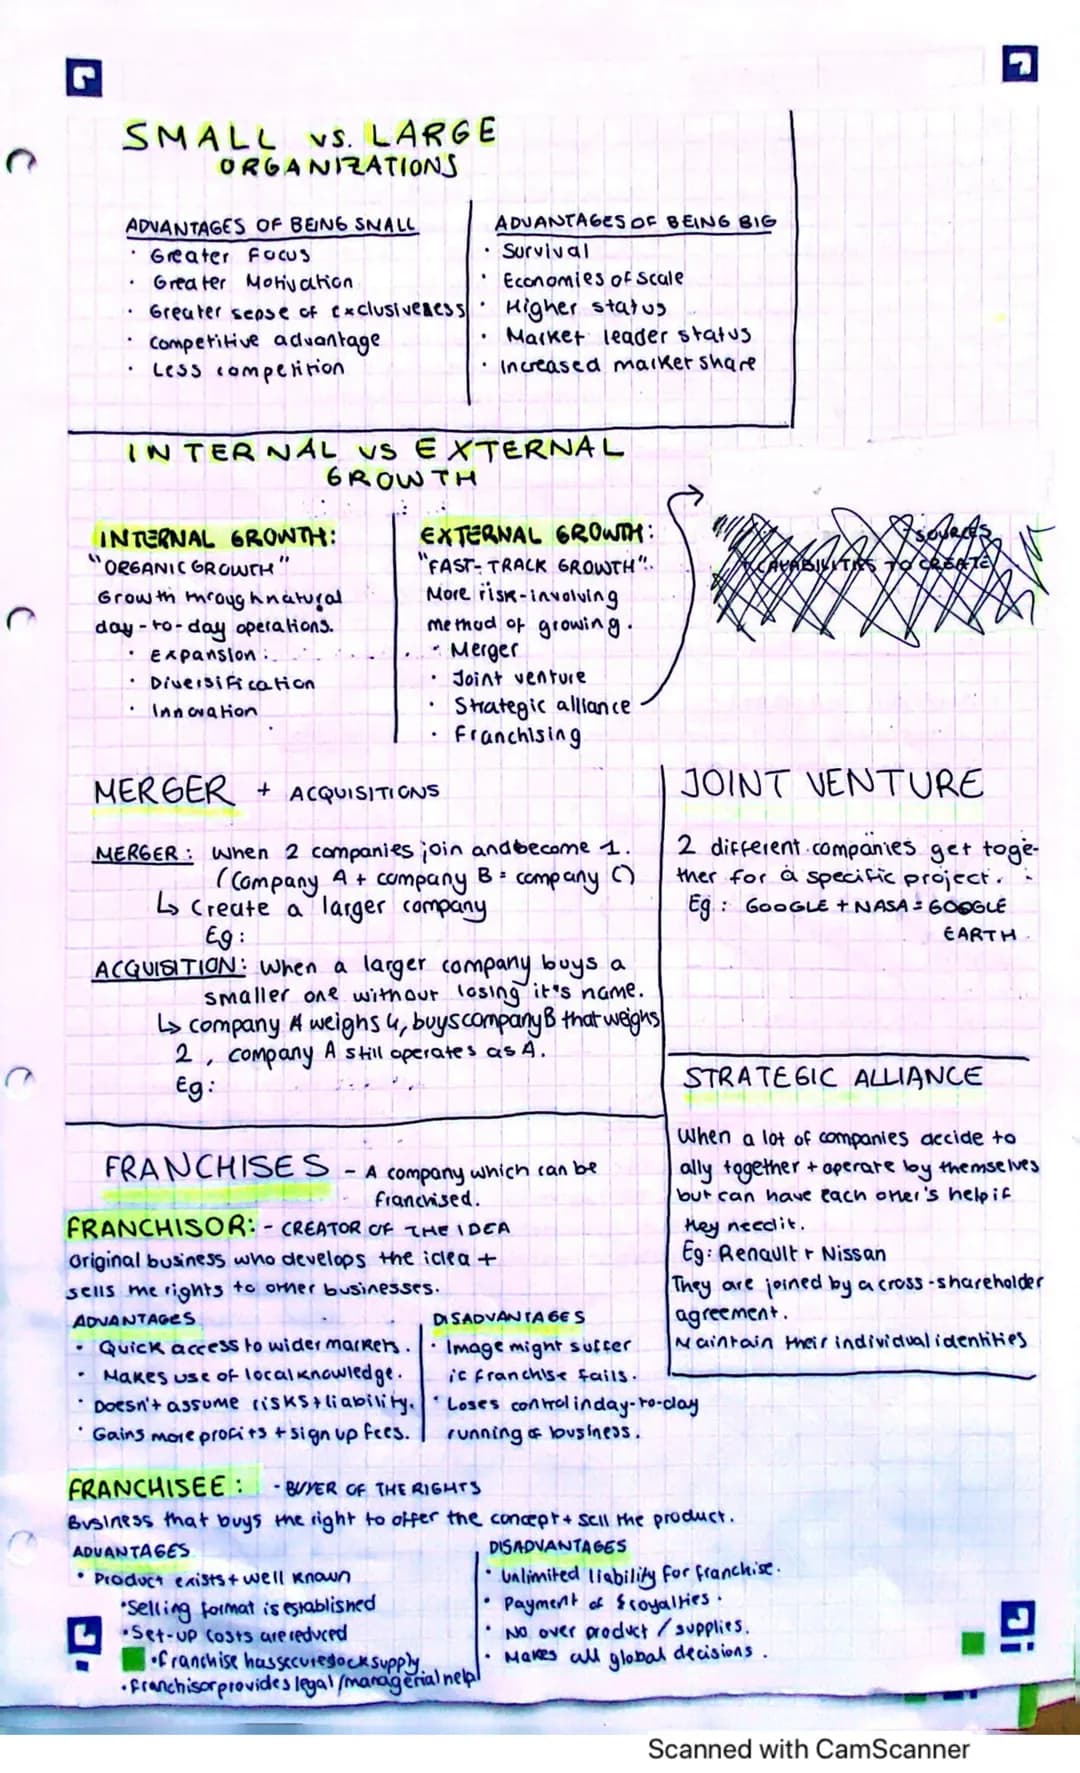 SMALL vs. LARGE
ORGANIZATIONS
ADVANTAGES OF BEING SMALL
· Greater Focus
· Greater Motivation
· Greater sense of exclusiveness
· competitive advantage
· Less competition
ADVANTAGES OF BEING BIG
· Survival
· Economies of scale
· Higher status
· Market leader status
· Increased market share
INTERNAL VS EXTERNAL
GROWTH
INTERNAL GROWTH:
"ORGANIC GROWTH"
Growth through natural
day-to-day operations.
· Expansion
· Diversification
· Innovation
EXTERNAL GROWTH:
"FAST-TRACK GROWTH".
More risk-involving
method of growing.
· Merger
· Joint venture
· Strategic alliance
· Franchising
CAPABILITIES TO CREATE
MERGER + ACQUISITIONS
MERGER: When 2 companies join and become 1.
(Company A + company B = company C)
↳ Create a larger company
Eg:
ACQUISITION: When a larger company buys a
smaller one without losing it's name.
↳ company A weighs 4, buys company B that weighs
2, company A still operates as A.
Eg:
JOINT VENTURE
2 different companies get toge-
ther for a specific project.
Eg: GOOGLE + NASA = GOOGLE
EARTH
STRATEGIC ALLIANCE
When a lot of companies decide to
ally together + operate by themselves
but can have each other's help if
they need it.
Eg: Renault + Nissan
They are joined by a cross-shareholder
agreement.
Maintain their individual identities
FRANCHISES - A company which can be
franchised.
FRANCHISOR: - CREATOR OF THE IDEA
Original business who develops the idea +
sells the rights to other businesses.
ADVANTAGES
· Quick access to wider markets.
· Makes use of local knowledge.
· Doesn't assume risks + liability.
· Gains more profits + sign up fees.
DISADVANTAGES
· Image might suffer
if franchise fails.
· Loses control in day-to-day
running of business.
FRANCHISEE: - BUYER OF THE RIGHTS
Business that buys the right to offer the concept + sell the product.
ADVANTAGES
· Product exists + well known
· Selling format is established
· Set-up costs are reduced
· franchise has secure stock supply
· franchisor provides legal/managerial help
DISADVANTAGES
· Unlimited liability for franchise.
· Payment of royalties.
· No over product / supplies.
· Makes all global decisions.
Scanned with CamScanner